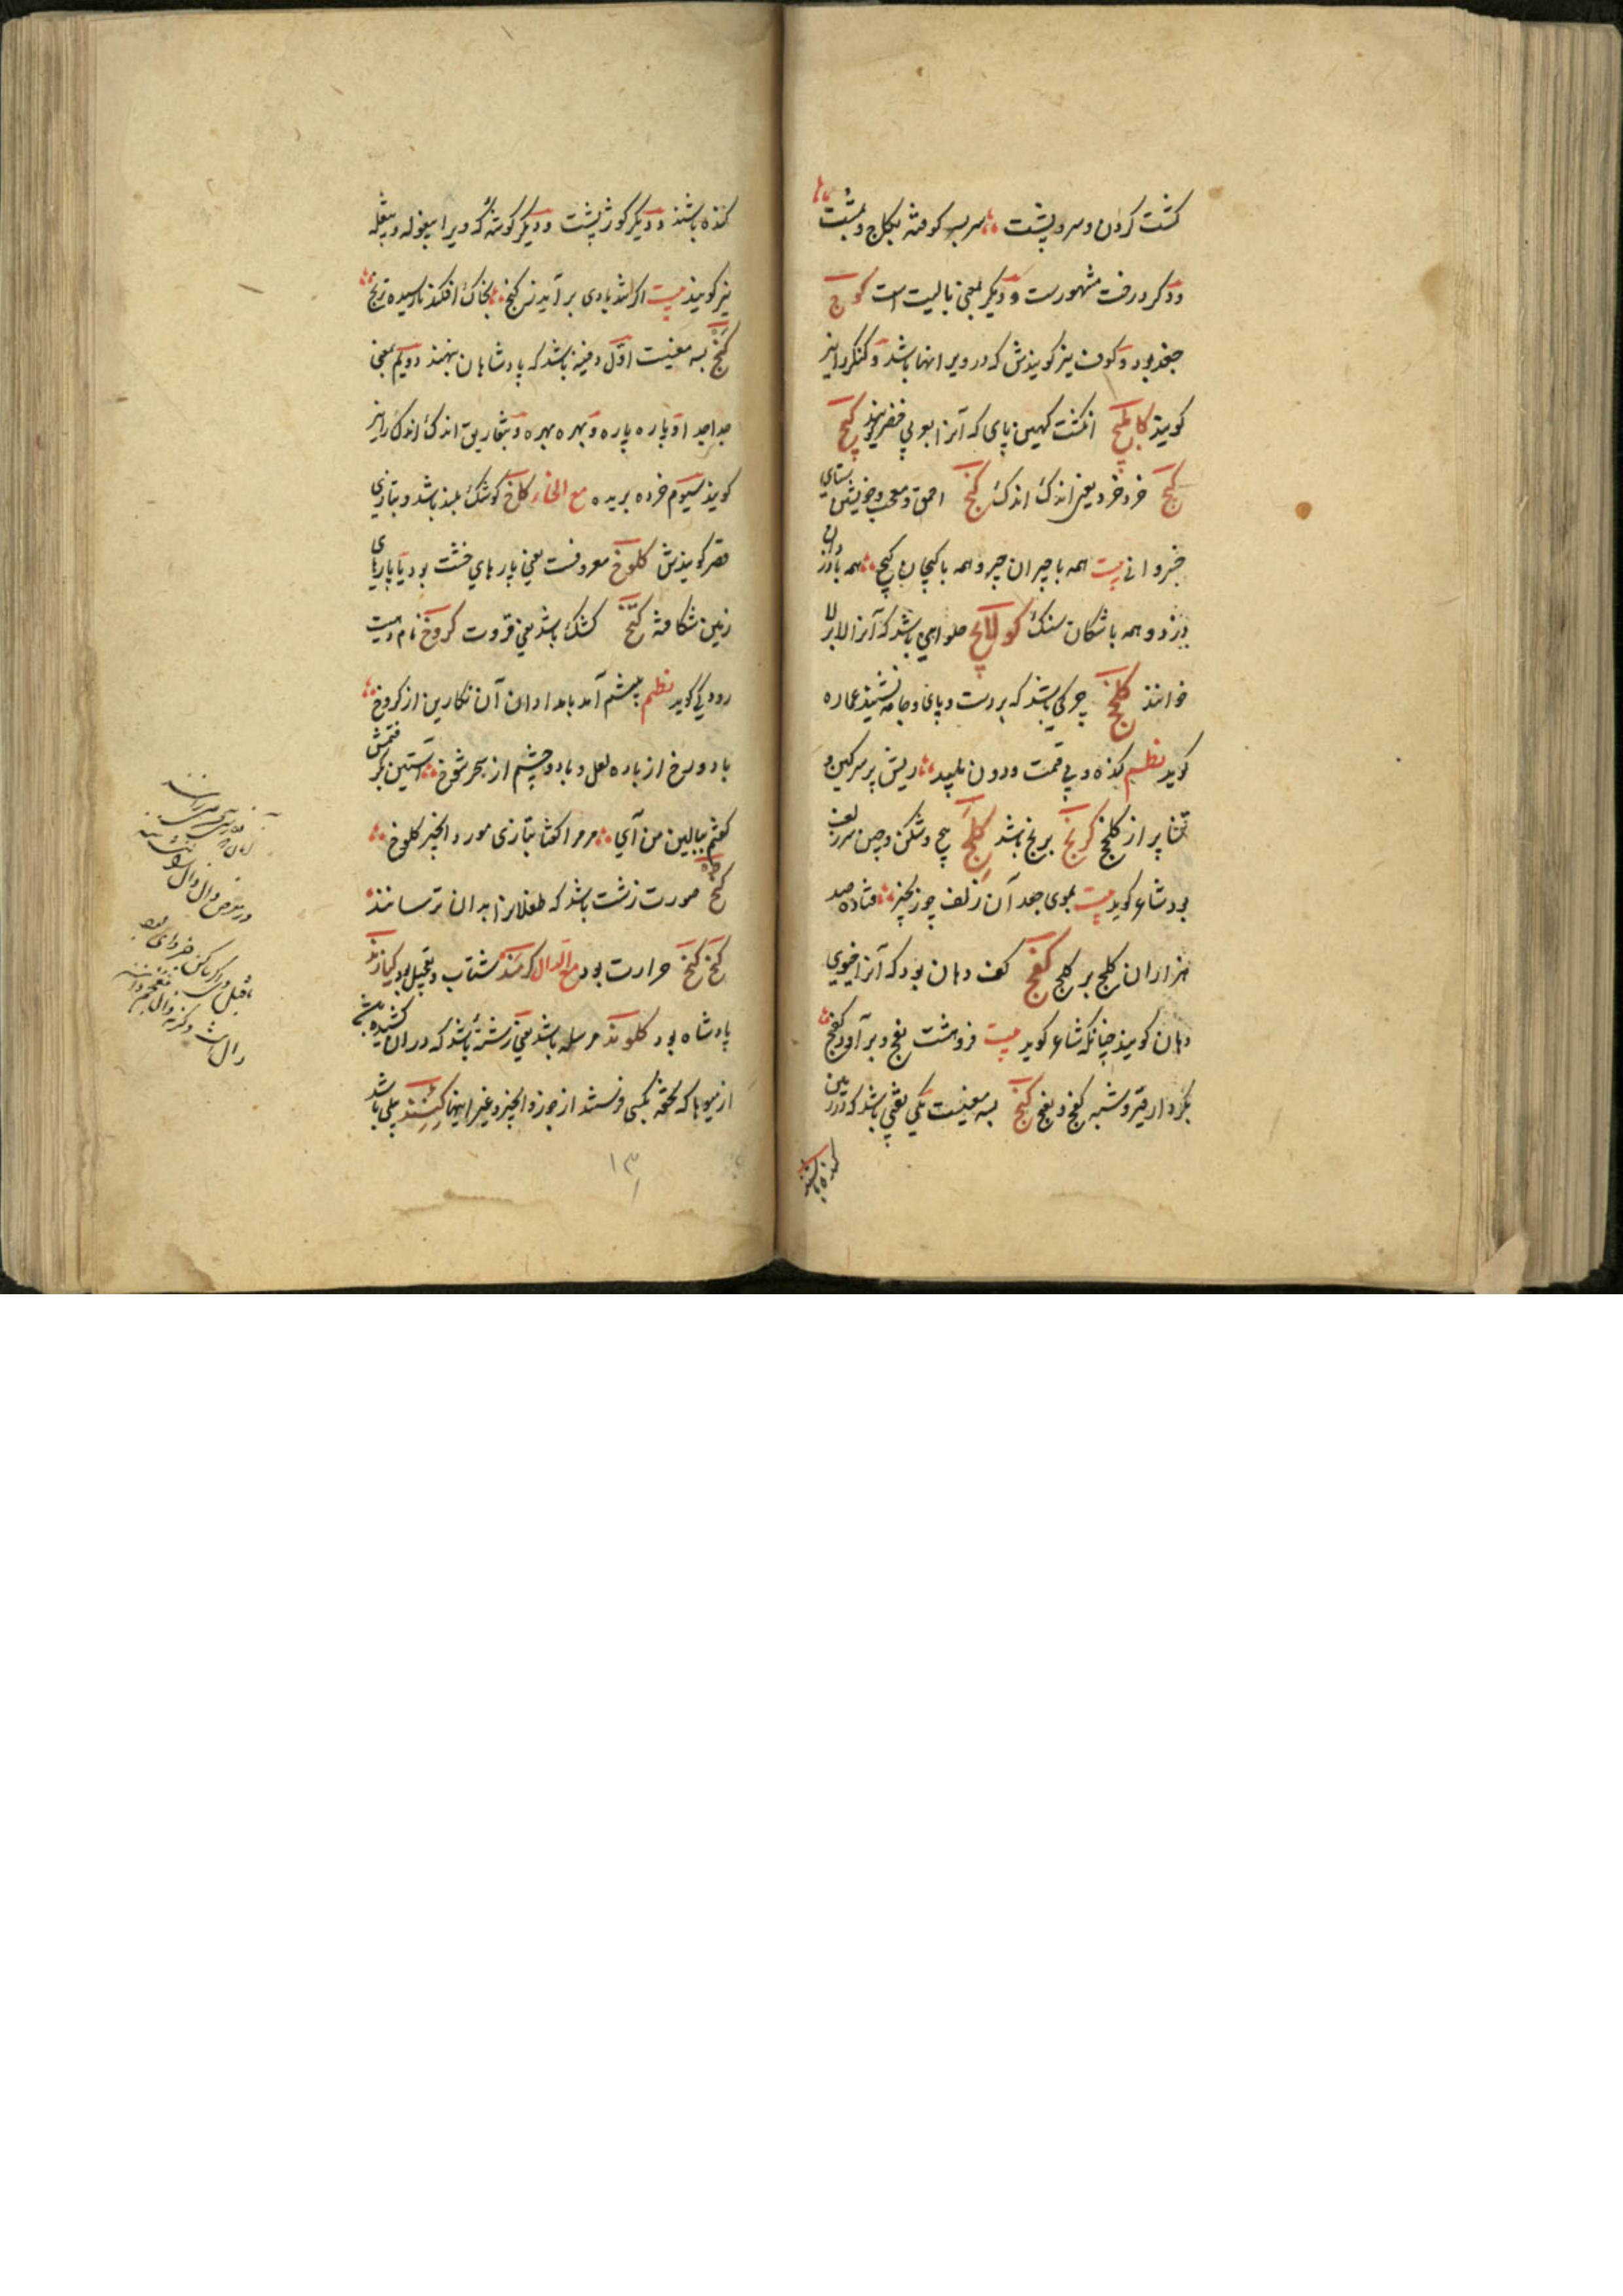 کشت کردن و سرو پشت سر بسر کوفته بکاج و بمشت
ودکر درفت مشهورست و دیکر بمعنی نالیست است کوچ
جغد بود و کوف نیز کویندش که در ویرانها باشد و کنکر را نیز
کویند کابلج انکشت کهین پای که آنرا بوبی خنصر کویند کیج
کیج خرد خرد یعنی اندک اندک کنج احمق و معجب و خویشتن ستای
خسروانی بیت همه با حیزان حیز و همه با کیجان کیج همه با دزدان
دزد و همه با شکان سنک کولانج حلوایی باشد که آنرا لابرلا
خوانند کلنج چرکی باشد که بر دست و پای و جامه نشیند عماره
کوید نظم کنده و بی قیمت و دون پلید ریش پر سرکین و
تنا پر از کلنج کرنج برنج باشد کلج چین و شکن و چین سر زلف
بود شاعر کوید بیت بموی جعد آن زلف چو زنجیر فتاده صد
هزاران کلج بر کلج کفج کف دهان بود که آنرا خیوی
دهان کویند چنانکه شاعر کوید بیت فروهشت بفج و برآورد کفج
بکردار قیر و شبه کفج و بفج کنج بسه معنیست یکی نقبی باشد که در زمین
کنده باشند
کنده باشند و دیکر کوژپشت و دیکر کوشه که ویرا بیغوله و بیغله
نیز کویند بیت اکر تند بادی برآید ز کنج بخاک افکند نارسیده ترنج
کنج بسه معنیست اول دفینه باشد که پادشاهان بنهند دویم بمعنی
جدا جدا و پاره پاره و بهره بهره و بتفاریق اندک اندک را نیز
کویند سیوم خرده بریده مع الخاء کاخ کوشک بلند باشد و بتازی
قصر کویندش کلوخ معروفست یعنی پارهای خشت بود یا پارهای
زمین شکافته کتخ کشک باشد یعنی قروت کروخ نام دهیست
رودکی کوید نظم پیشم آمد بامدادان آن نکارین از کروخ
با دو رخ از باده لعل و با دو چشم از سحر شوخ آستین بکرفتمش
کفتم ببالین من آی مر مرا کفتا بتازی مورد و انجیر کلوخ
کخ صورت زشت باشد که طفلانرا بدان ترسانند
کخ کخ حرارت بود مع الدال کرمند شتاب و تعجیل بود کیارند
پادشاه بود کلوند مرسله باشد یعنی رشته باشد که در آن کشیده باشند
از میوها که بتحفه بکسی فرستند از جوز و انجیر و غیر اینها کبند پلی باشد
۱۳